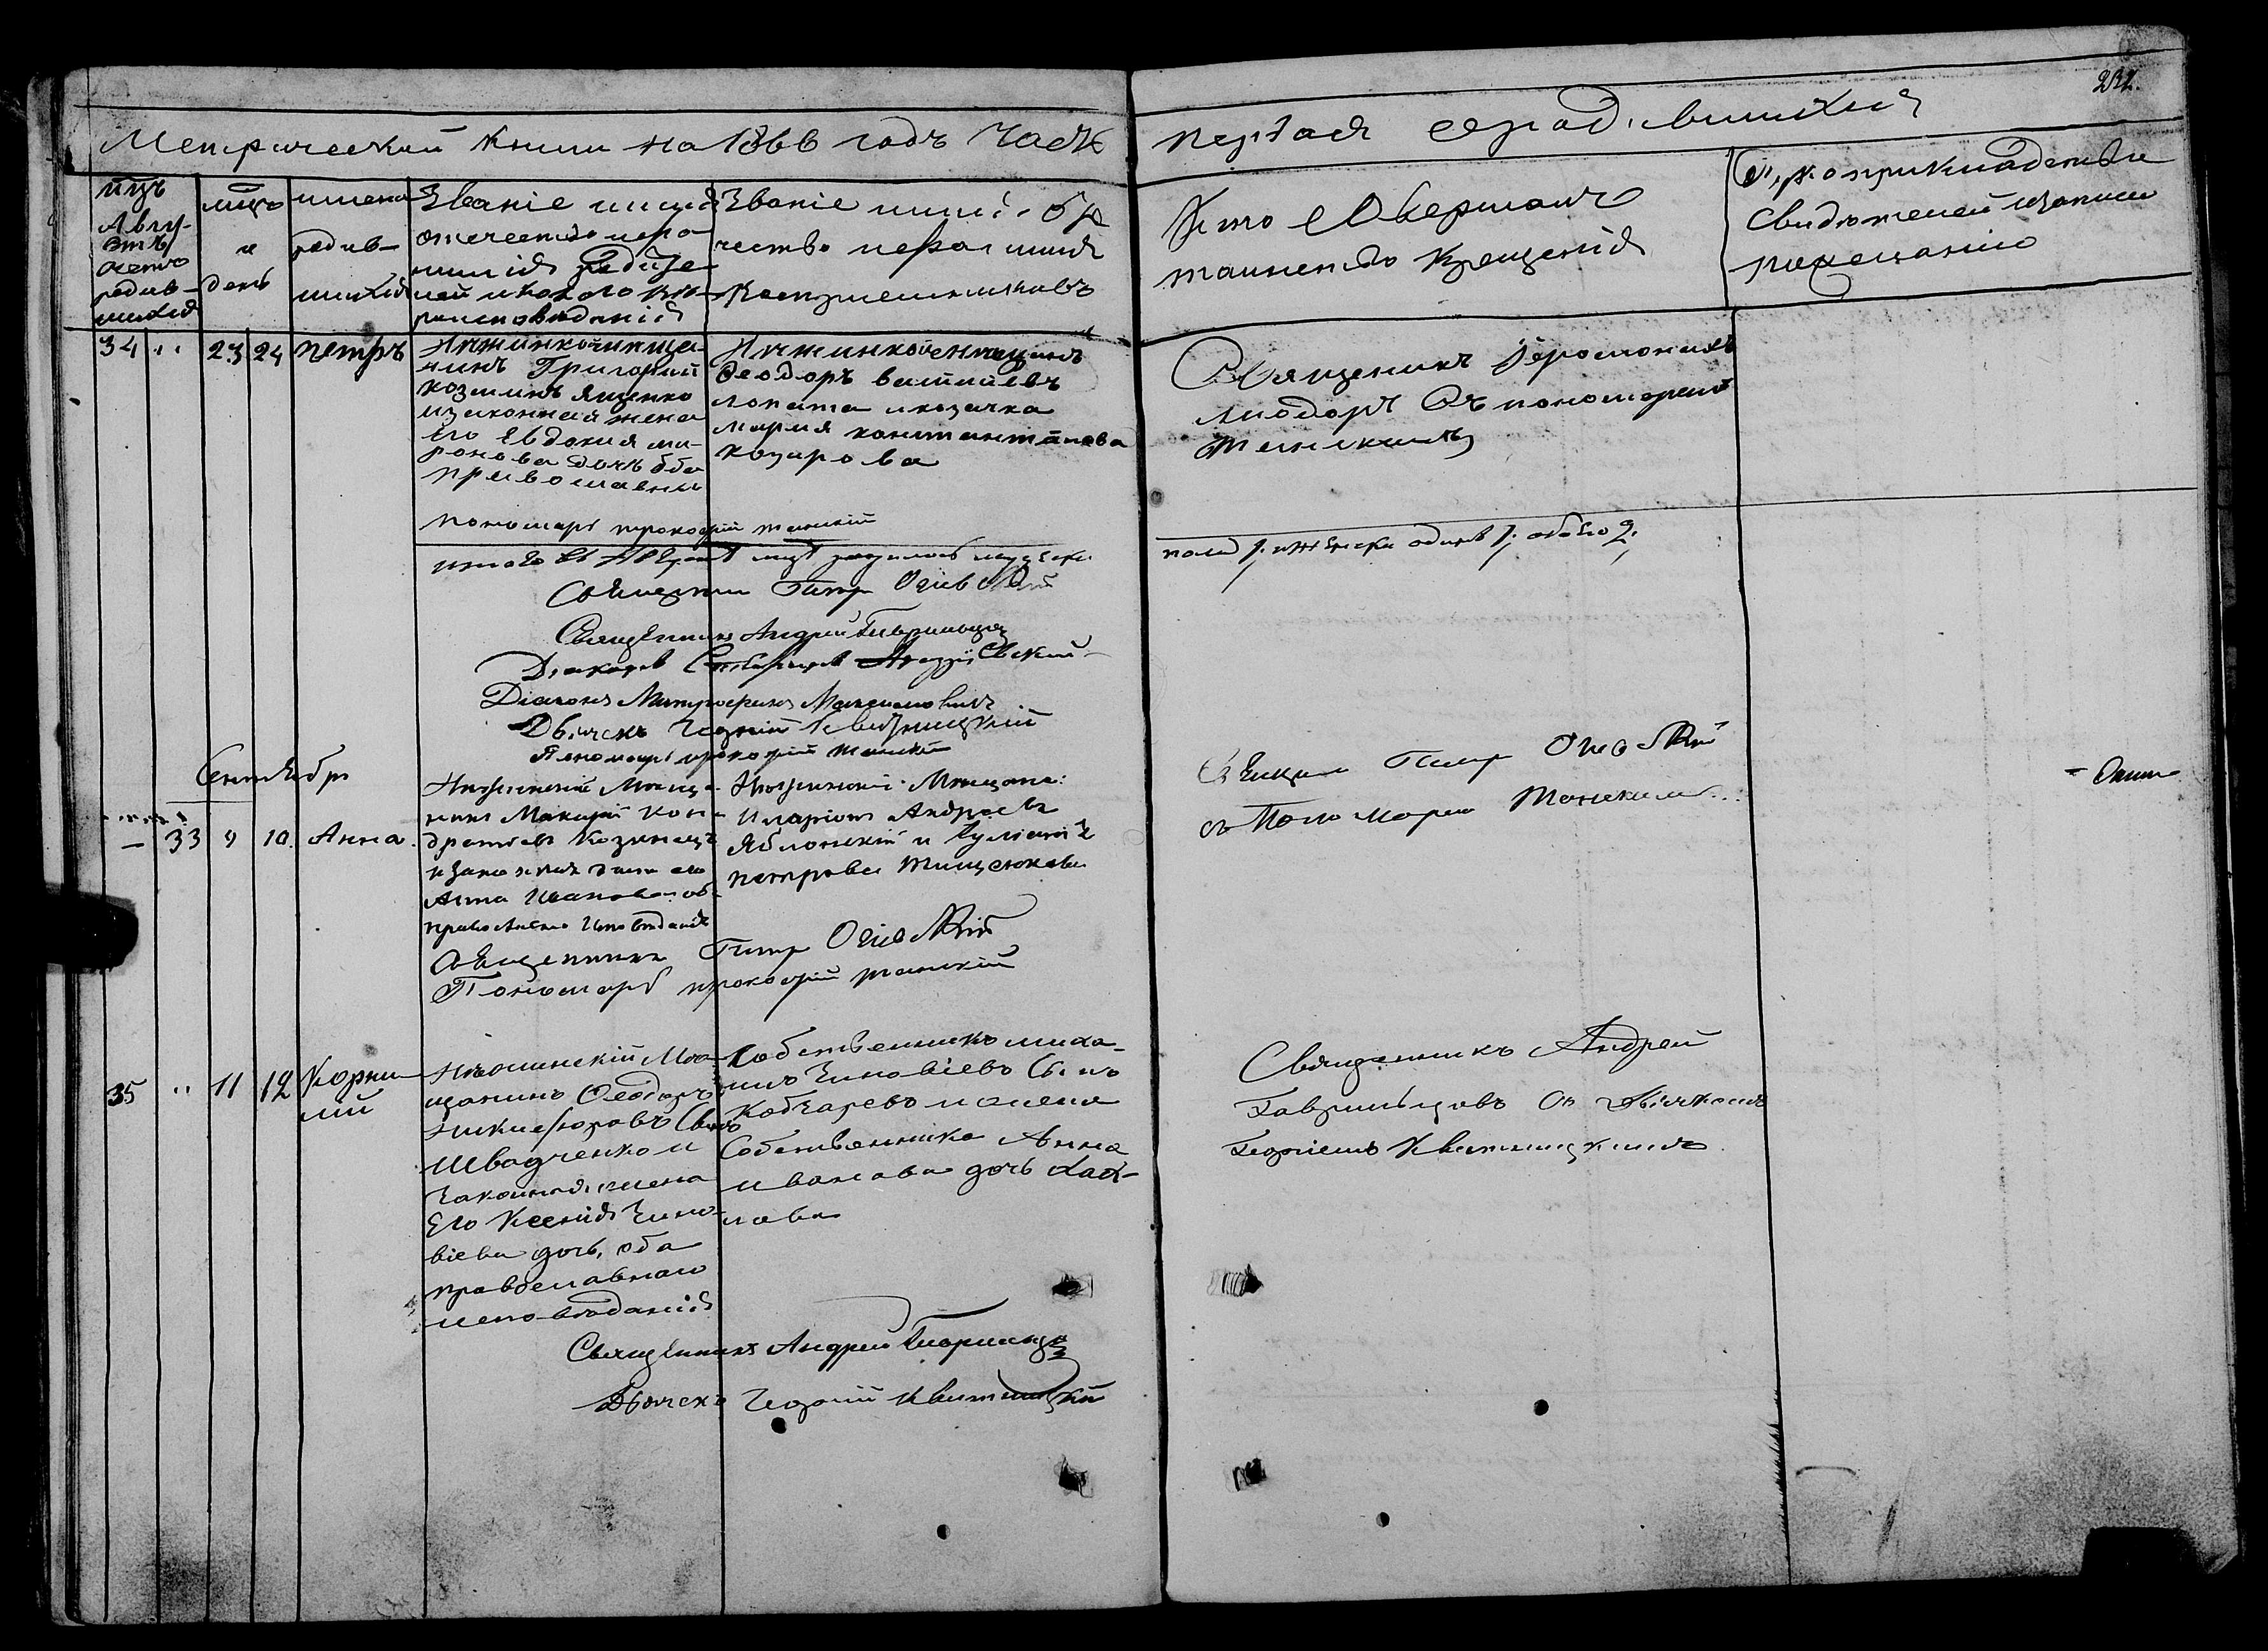 232.
Метрической книги на 1866 годъ часть
первая о родившихся
мцъ
Авгу-
стъ
щетъ
родив-
шихся
мцъ
и
день
имена
родив-
шихся
Званіе имя
отечество и фа
милія родите-
лей и какого вѣ-
роисповѣданія
Званіе имя, оте
чество и фамилія
воспріемниковъ
Кто совершалъ
таинство крещенія
Рукоприкладство
свидѣтелей записи
по желанію
34 " 23 24 Петръ
Нѣжинской мѣща-
нинъ Григорій
Козминъ Яценко
и законная жена
его Евдокия ми-
ронова дочь оба
православны
Нѣжинской мещанинъ
Феодоръ василиевъ
лопата и козачка
мария константинова
козирова
Священникъ Іеромонахъ
лиодоръ Съ пономаремъ
Танскимъ
пономарь прокофій танскій
итого въ Августѣ мцѣ родилось мужеска
пола 1. и женска одинъ 1. обоего 2.
Священникъ Петръ Огіевскій
Священникъ Андрей Гаврильцовъ
Діаконъ Андріевскій
Діаконъ Митрофанъ Максимовичъ
Дьячекъ Георгій Квитницкій
Пономарь прокофій танскій
Сентябрь
33 9 10. Анна.
Нѣжинскій Мѣща-
нинъ Макарій Кон-
дратовъ Козинецъ
и законная жена его
Анна Иванова об.
православно исповѣданія
Нѣжинскій Мѣщани:
Иларіонъ Андреевъ
Яблонскій и Іуліанія
петрова Тищенкова
Священникъ Петръ Огіевскій
съ Пономаремъ Танскимъ
Священникъ Петръ Огіевскій
Пономарь прокофій танскій
35 " 11 12 Корни
лій
Нѣжинскій Мѣ-
щанинъ Феодоръ
Никифоровъ Сынъ
Швадченко и
законная жена
Его Ксенія Зино-
віева дочь, оба
православнаго
исповѣданія
Собственникъ миха-
илъ Зиновіевъ Сынъ
Кобчаревъ и жена
Собственника Анна
иванова дочь
Священникъ Андрей
Гаврильцовъ Съ дьячкомъ
Георгіемъ Квитницкимъ
Священникъ Андрей Гаврильцовъ
Дьячекъ Георгій Квитницкій